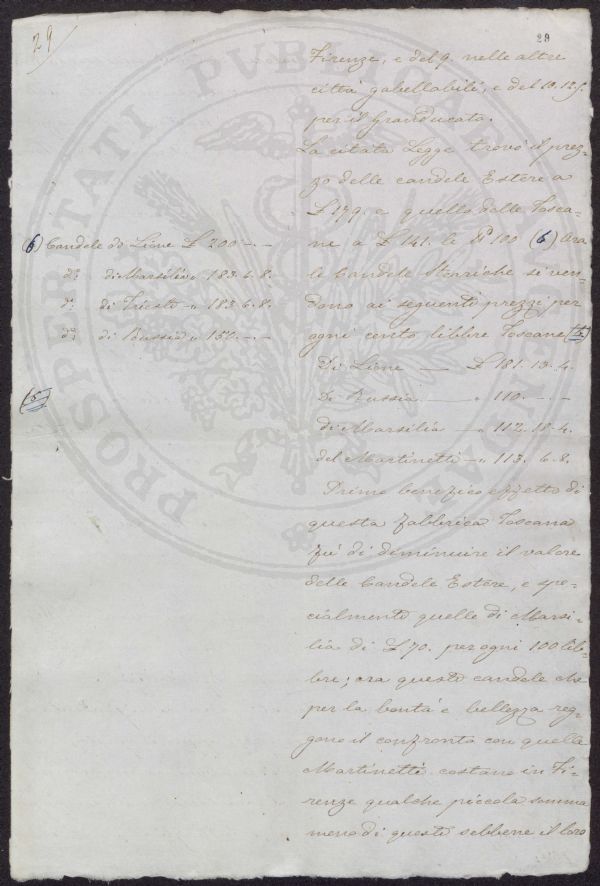 29
28
Firenze, e del 9. nelle altre
città gabellabili, e del 10.12 f.
per il Granducato.
La citata Legge trovò il prez-
zo delle candele Estere a
£ 179. e quello delle Tosca-
ne a £ 141. le lb 100 (6) Ora
le Candele Steariche si ven-
dono ai seguenti prezzi per
ogni cento libbre Toscane
Di Lione — £ 181. 13. 4.
De Russia — „ 110. – –
di Marsilia — „ 112. 18. 4.
del Martinetti — „ 113. 6. 8.
Primo benefico effetto di
questa fabbrica Toscana
fù di diminuire il valore
delle Candele Estere, e spe-
cialmente quelle di Marsi-
lia di £ 70. per ogni 100 lib-
bre; ora queste candele che
per la bontà e bellezza reg-
gono il confronto con quelle
Martinetti costano in Fi-
renze qualche piccola somma
meno di queste sebbene il loro
(6) Candele di Lione £ 200 –. –
d.e di Marsilia „ 183. 6. 8.
d.e di Trieste „ 183. 6. 8.
d.e di Russia „ 150. –. –
PROSPERITATI PVBLICAE AVGENDAE